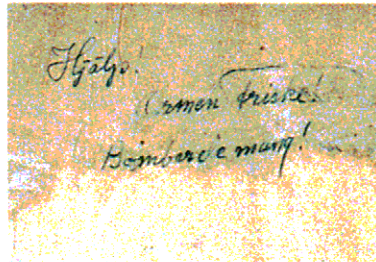 Hjälp!
Armén Fricke!
Bomberde mang!